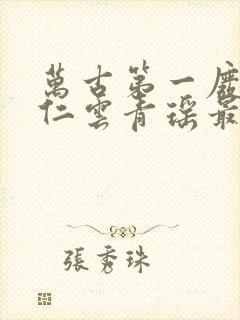 萬古第一廢
仁雲青瑤最
張秀珠